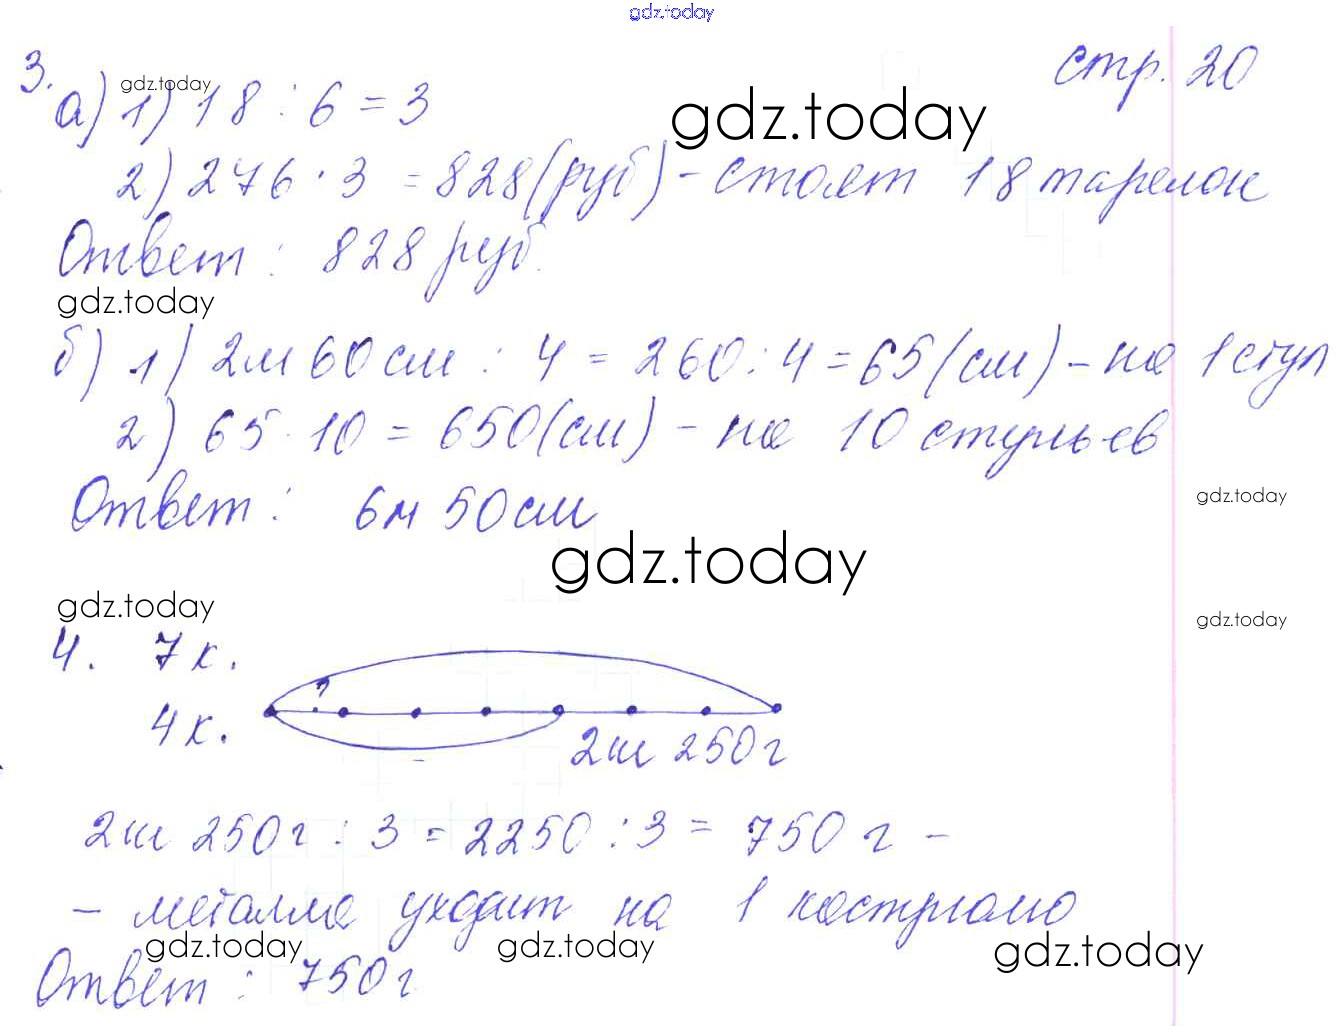 gdz.today
стр. 20
3.
gdz.today
а) 1) 18 : 6 = 3
gdz.today
2) 276 · 3 = 828 (руб) - стоят 18 тарелок
Ответ : 828 руб.
gdz.today
б) 1) 2м 60 см : 4 = 260 : 4 = 65 (см) - на 1 стул
2) 65 · 10 = 650 (см) - на 10 стульев
gdz.today
Ответ : 6м 50 см
gdz.today
gdz.today
gdz.today
4. 7 к.
?
4 к.
2кг 250 г
2кг 250 г : 3 = 2250 : 3 = 750 г -
- металла уходит на 1 кастрюлю
gdz.today
gdz.today
gdz.today
Ответ : 750 г